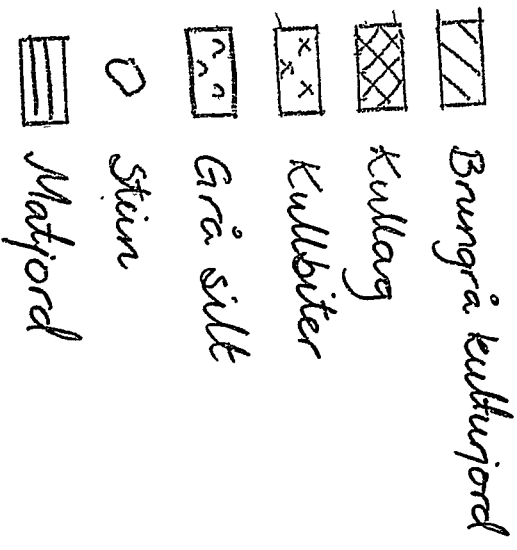 Brungrå kulturjord
Kullag
Kullbiter
Grå silt
Stein
Matjord